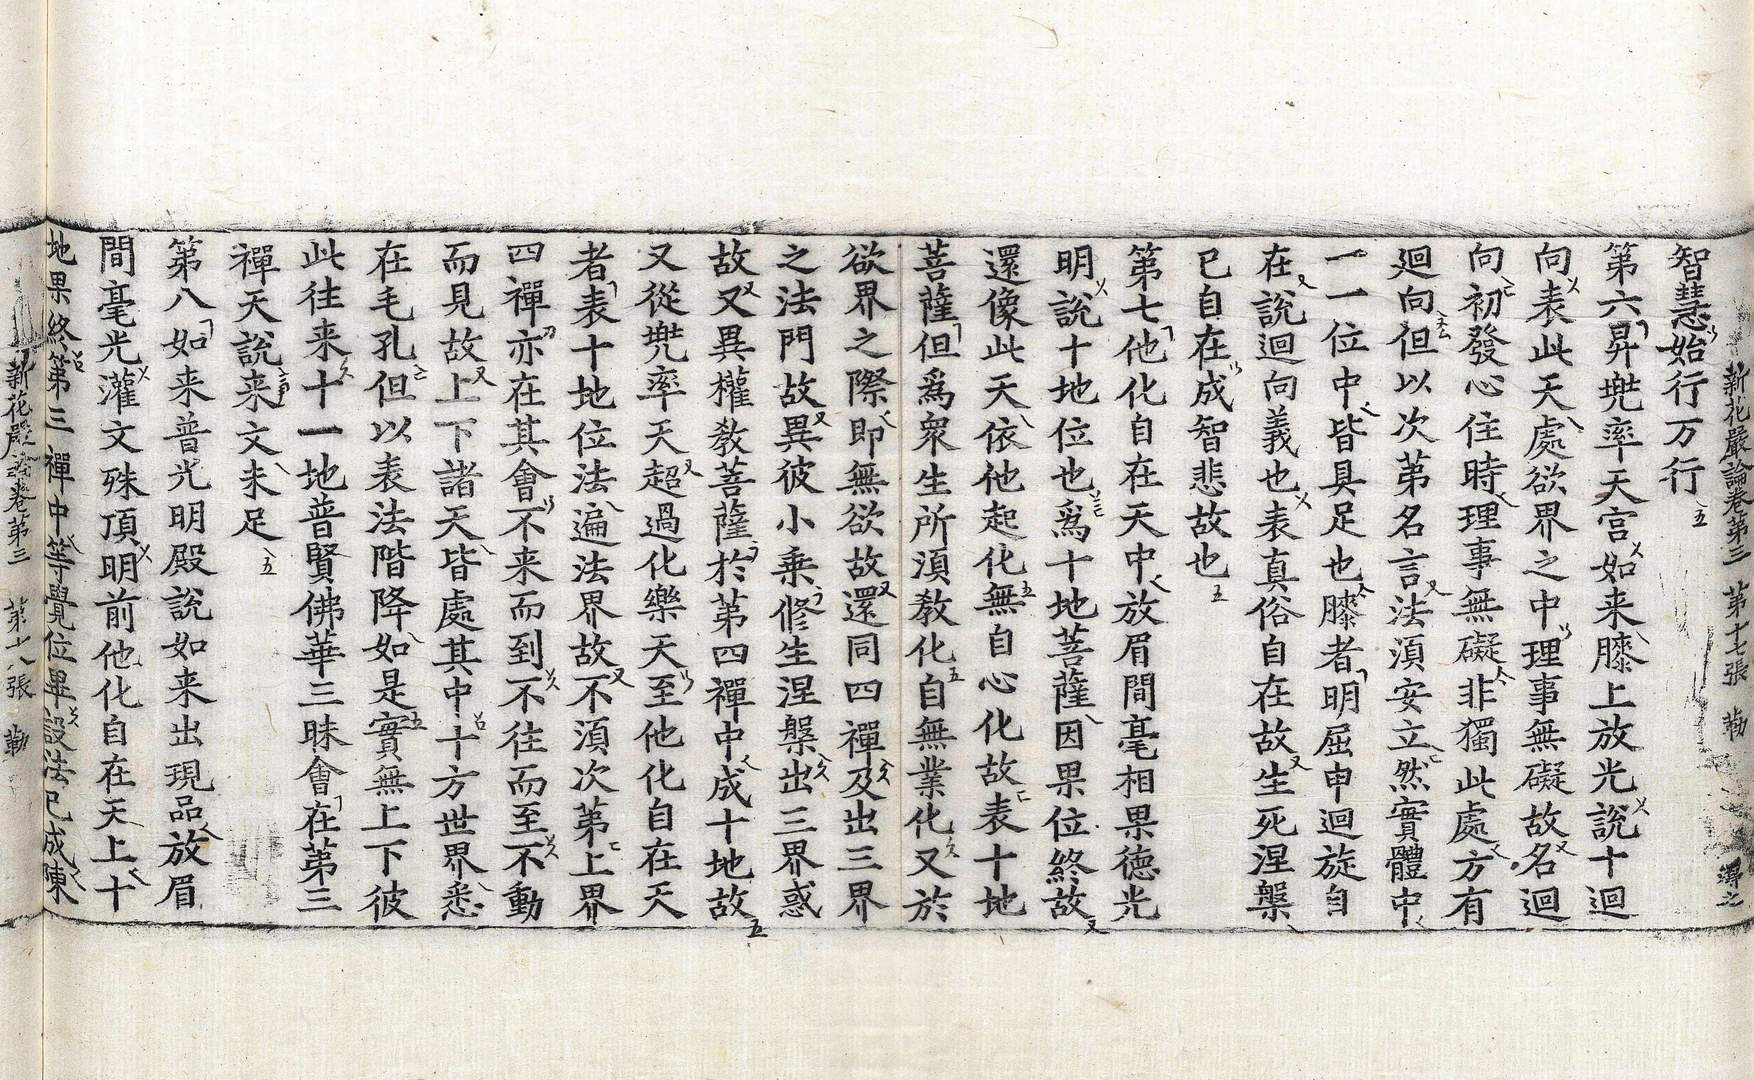 新花嚴論卷第三 第十七張 勒 得之
智慧始行万行
第六昇兠率天宫如来膝上放光說十迴
向表此天處欲界之中理事無礙故名迴
向初發心住時理事無礙非獨此處方有
迴向但以次第名言法湏安立然實體中
一一位中皆具足也膝者明屈申迴旋自
在說迴向義也表真俗自在故生死涅槃
已自在成智悲故也
第七他化自在天中放眉間毫相果德光
明說十地位也爲十地菩薩因果位終故
還像此天依他起化無自心化故表十地
菩薩但爲衆生所湏敎化自無業化又於
欲界之際即無欲故還同四禪及出三界
之法門故異彼小乗修生涅槃出三界惑
故又異權敎菩薩於第四禪中成十地故
又從兠率天超過化樂天至他化自在天
者表十地位法遍法界故不湏次第上界
四禪亦在其會不来而到不往而至不動
而見故上下諸天皆處其中十方世界悉
在毛孔但以表法階降如是實無上下彼
此往来十一地普賢佛華三昧會在第三
禪天說来文未足
第八如来普光明殿說如来出現品放眉
間毫光灌文殊頂明前他化自在天上十
地果終第三禪中等覺位畢設法已成陳
新花嚴論卷第三 第十八張 勒